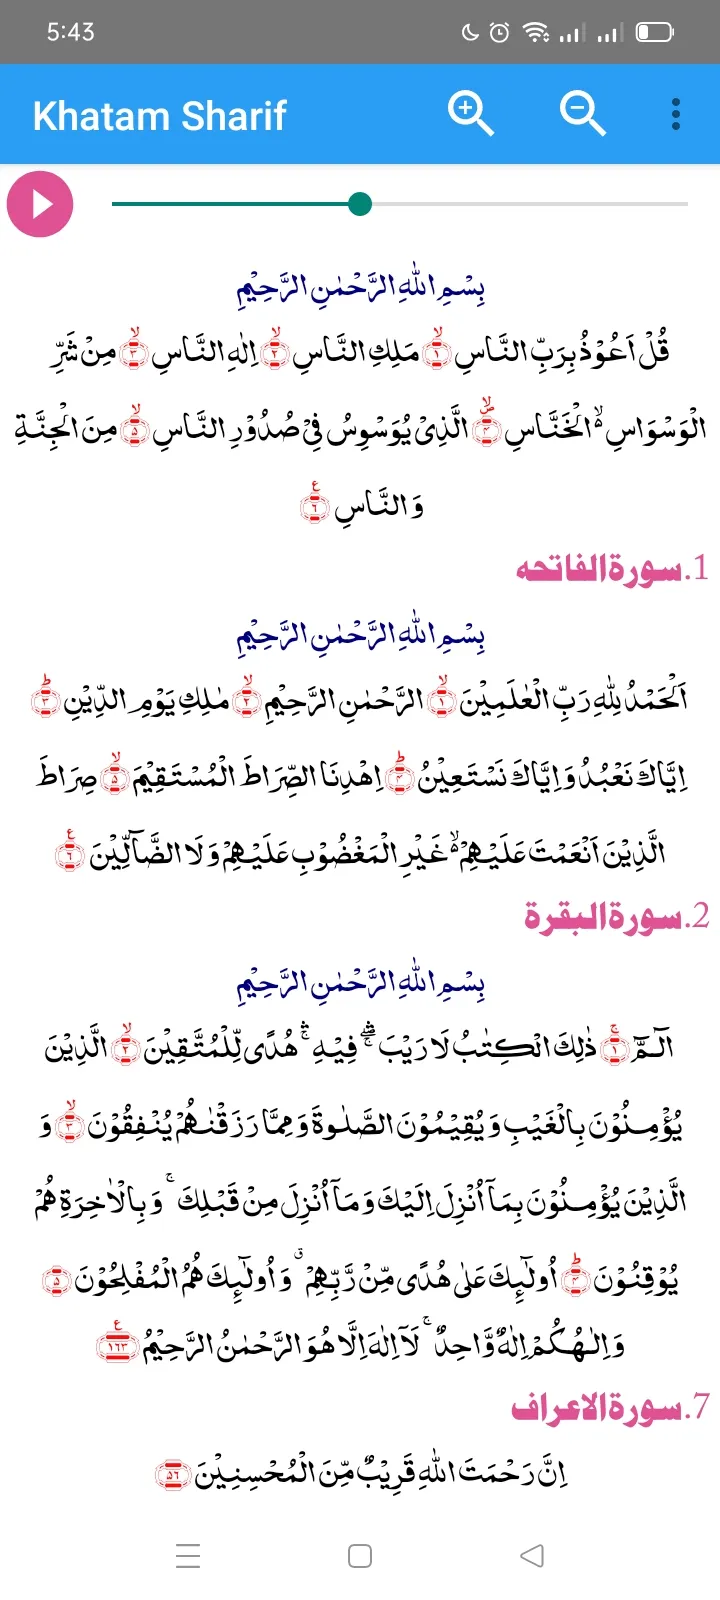 5:43
Khatam Sharif
بِسْمِ اللّٰهِ الرَّحْمٰنِ الرَّحِیْمِ
قُلْ اَعُوْذُ بِرَبِّ النَّاسِ ۙ﴿۱﴾ مَلِكِ النَّاسِ ۙ﴿۲﴾ اِلٰهِ النَّاسِ ۙ﴿۳﴾ مِنْ شَرِّ
الْوَسْوَاسِ ۙ۬ الْخَنَّاسِ ۪ۙ﴿۴﴾ الَّذِیْ یُوَسْوِسُ فِیْ صُدُوْرِ النَّاسِ ۙ﴿۵﴾ مِنَ الْجِنَّةِ
وَ النَّاسِ ﴿۶﴾ع
1.سورة الفاتحه
بِسْمِ اللّٰهِ الرَّحْمٰنِ الرَّحِیْمِ
اَلْحَمْدُ لِلّٰهِ رَبِّ الْعٰلَمِیْنَ ۙ﴿۱﴾ الرَّحْمٰنِ الرَّحِیْمِ ۙ﴿۲﴾ مٰلِكِ یَوْمِ الدِّیْنِ ؕ﴿۳﴾
اِیَّاكَ نَعْبُدُ وَ اِیَّاكَ نَسْتَعِیْنُ ؕ﴿۴﴾ اِهْدِنَا الصِّرَاطَ الْمُسْتَقِیْمَ ۙ﴿۵﴾ صِرَاطَ
الَّذِیْنَ اَنْعَمْتَ عَلَیْهِمْ ۙ۬ غَیْرِ الْمَغْضُوْبِ عَلَیْهِمْ وَ لَا الضَّآلِّیْنَ ﴿۶﴾ع
2.سورة البقرة
بِسْمِ اللّٰهِ الرَّحْمٰنِ الرَّحِیْمِ
الٓمّٓ ۚ﴿۱﴾ ذٰلِكَ الْكِتٰبُ لَا رَیْبَ ۛۖۚ فِیْهِ ۛۚ هُدًی لِّلْمُتَّقِیْنَ ۙ﴿۲﴾ الَّذِیْنَ
یُؤْمِنُوْنَ بِالْغَیْبِ وَ یُقِیْمُوْنَ الصَّلٰوةَ وَ مِمَّا رَزَقْنٰهُمْ یُنْفِقُوْنَ ۙ﴿۳﴾ وَ
الَّذِیْنَ یُؤْمِنُوْنَ بِمَاۤ اُنْزِلَ اِلَیْكَ وَ مَاۤ اُنْزِلَ مِنْ قَبْلِكَ ۚ وَ بِالْاٰخِرَةِ هُمْ
یُوْقِنُوْنَ ؕ﴿۴﴾ اُولٰٓئِكَ عَلٰی هُدًی مِّنْ رَّبِّهِمْ ۗ وَ اُولٰٓئِكَ هُمُ الْمُفْلِحُوْنَ ﴿۵﴾
وَ اِلٰـهُكُمْ اِلٰهٌ وَّاحِدٌ ۚ لَاۤ اِلٰهَ اِلَّا هُوَ الرَّحْمٰنُ الرَّحِیْمُ ﴿۱۶۳﴾ع
7.سورة الاعراف
اِنَّ رَحْمَتَ اللّٰهِ قَرِیْبٌ مِّنَ الْمُحْسِنِیْنَ ﴿۵۶﴾